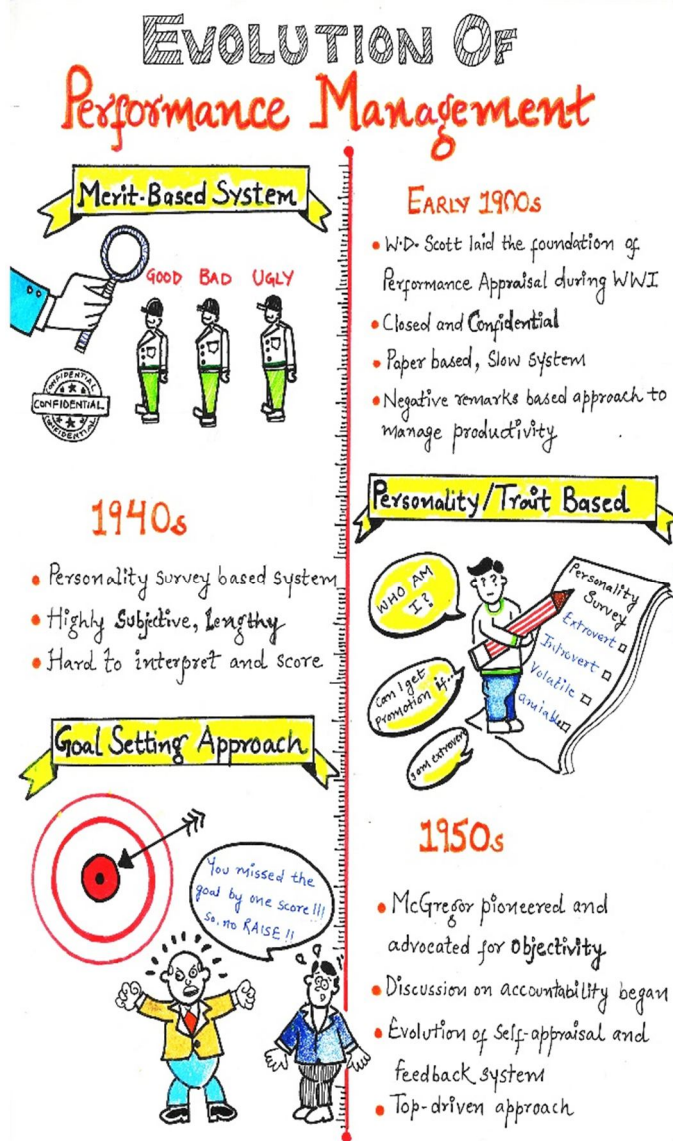 EVOLUTION OF
Performance Management
Merit-Based System
GOOD BAD UGLY
CONFIDENTIAL
CONFIDENTIAL
CONFIDENTIAL
EARLY 1900s
• W.D. Scott laid the foundation of
Performance Appraisal during WWI
• Closed and Confidential
• Paper based, Slow system
• Negative remarks based approach to
manage productivity
Personality/Trait Based
1940s
• Personality survey based system
• Highly Subjective, Lengthy
• Hard to interpret and score
WHO AM
I?
Can I get
Promotion if...
I am extrovert
? ?
Personality
Survey
Extrovert
Introvert
Volatile
amiable
Goal Setting Approach
You missed the
goal by one score!!!
So, no RAISE!!
1950s
• McGregor pioneered and
advocated for Objectivity
• Discussion on accountability began
• Evolution of Self-appraisal and
feedback system
• Top-driven approach